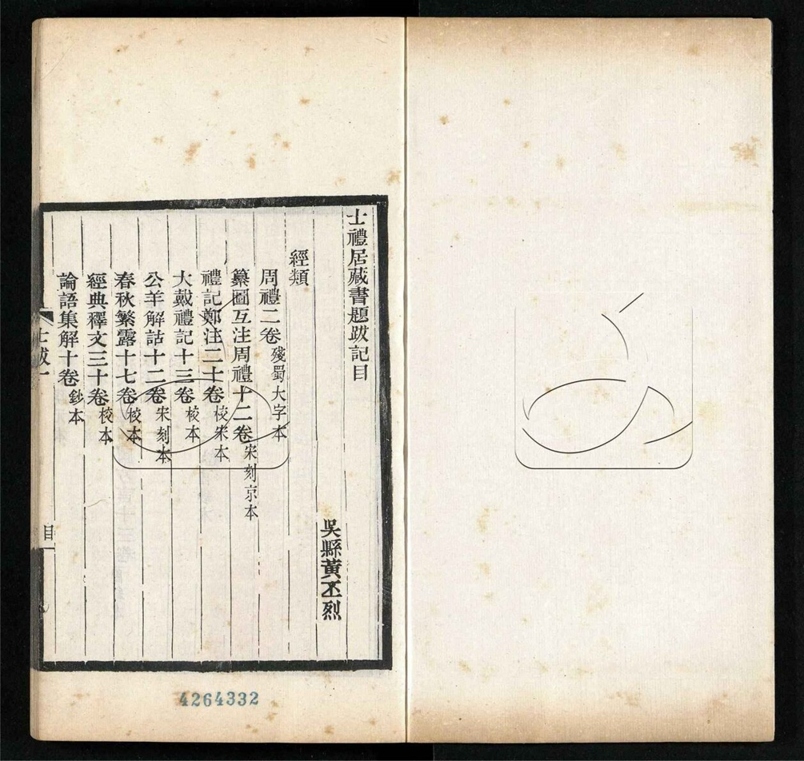 士禮居藏書題跋記目
吳縣黃丕烈
經類
周禮二卷殘蜀大字本
纂圖互注周禮十二卷宋刻京本
禮記鄭注二十卷校宋本
大戴禮記十三卷校本
公羊解詁十二卷宋刻本
春秋繁露十七卷校本
經典釋文三十卷校本
論語集解十卷鈔本
目一
4264332